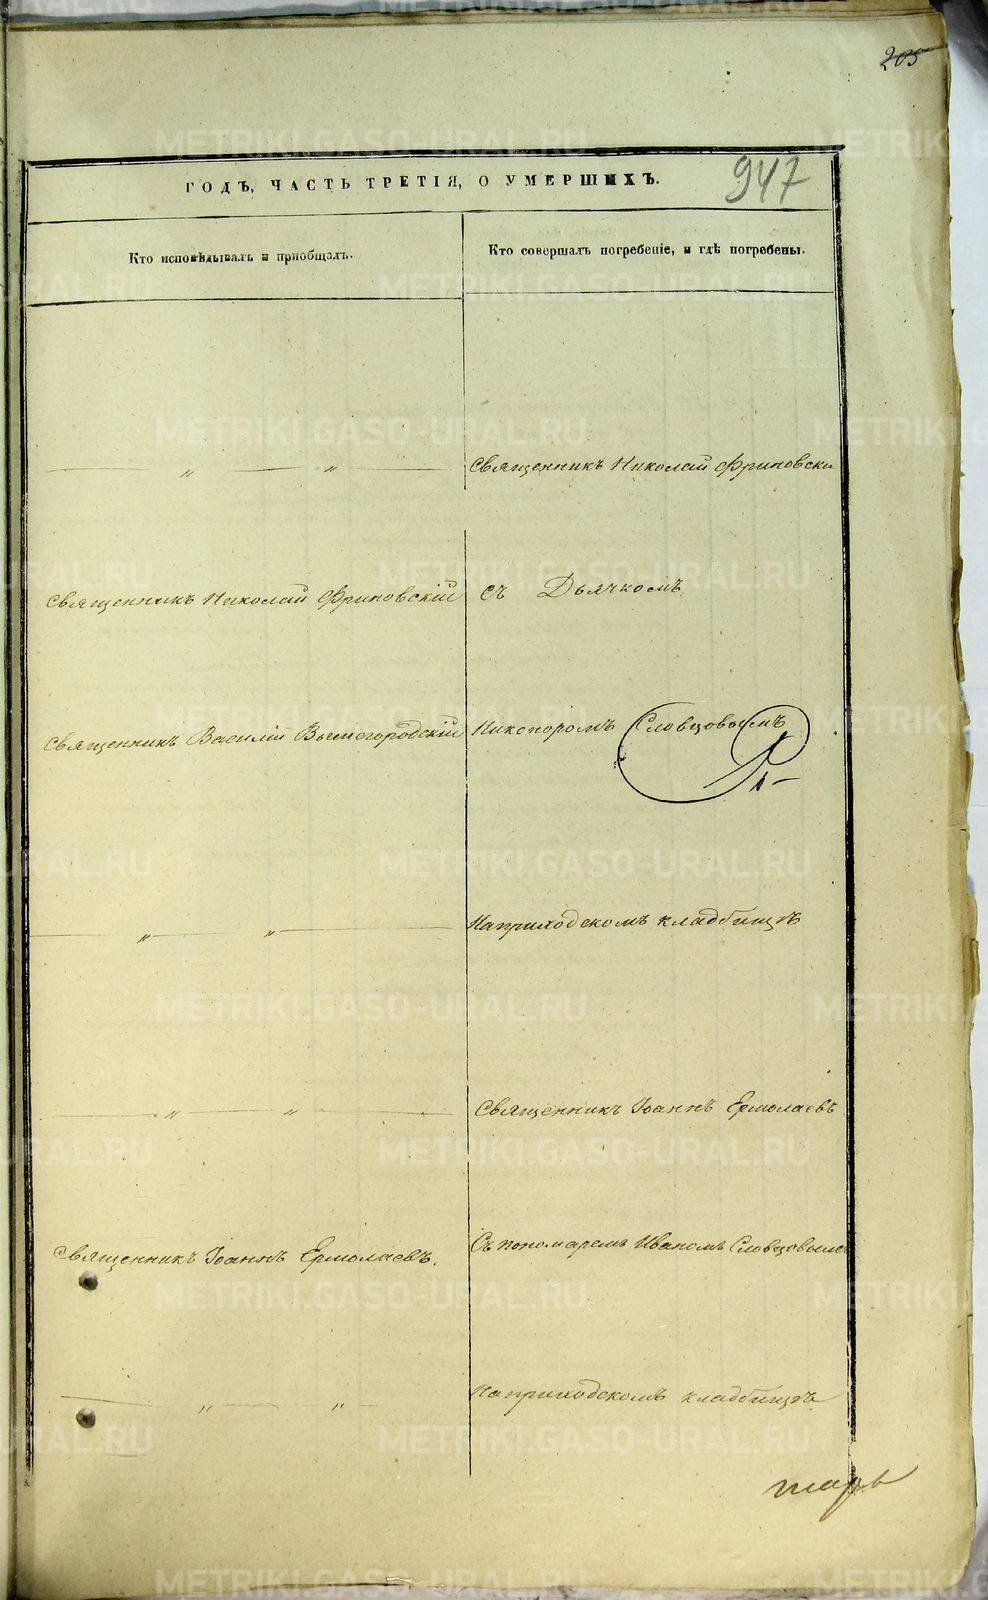 205
947
ГОДЪ, ЧАСТЬ ТРЕТІЯ, О УМЕРШИХЪ.
Кто исповѣдывалъ и пріобщалъ.
Кто совершалъ погребеніе, и гдѣ погребены.
— „ — „ —
Священникъ Николай Фриновски
Священникъ Николай Фриновскій
съ Дьячкомъ
Священникъ Василій Вышегородскій
Никопоромъ Словцовымъ
— „ — „ —
На приходскомъ кладбищѣ
— „ — „ —
Священникъ Іоаннъ Ермолаевъ
Священникъ Іоаннъ Ермолаевъ.
Съ пономаремъ Иваномъ Словцовымъ
— „ — „ —
На приходскомъ кладбищѣ
METRIKI.GASO-URAL.RU